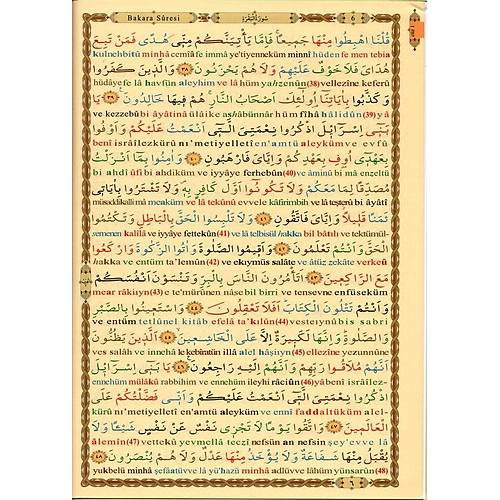 Bakara Sûresi سُورَةُ الْبَقَرَةِ 6
قُلْنَا اهْبِطُوا مِنْهَا جَمِيعًا فَاِمَّا يَأْتِيَنَّكُمْ مِنِّي هُدًى فَمَنْ تَبِعَ
kulnehbitû minhâ cemîa fe immâ ye'tiyenneküm minnî hüden fe men tebia
هُدَايَ فَلَا خَوْفٌ عَلَيْهِمْ وَلَا هُمْ يَحْزَنُونَ ﴿٣٨﴾ وَالَّذِينَ كَفَرُوا
hüdâye fe lâ havfün aleyhim ve lâ hüm yahzenûn(38) vellezîne keferû
وَكَذَّبُوا بِاٰيَاتِنَا اُولٰئِكَ اَصْحَابُ النَّارِ هُمْ فِيهَا خَالِدُونَ ﴿٣٩﴾ يَا
ve kezzebû bi âyâtinâ ülâike as/âbünnâr hüm fîhâ hâlidûn(39) yâ
بَنِي اِسْرَائِيلَ اذْكُرُوا نِعْمَتِيَ الَّتِي اَنْعَمْتُ عَلَيْكُمْ وَاَوْفُوا
benî isrâîlezkürû ni'metiyelletî en'amtü aleyküm ve evfû
بِعَهْدِي اُوفِ بِعَهْدِكُمْ وَاِيَّايَ فَارْهَبُونِ ﴿٤٠﴾ وَاٰمِنُوا بِمَا اَنْزَلْتُ
bi ahdî ûfi bi ahdiküm ve iyyâye ferhebûn(40) ve âminû bi mâ enzeltü
مُصَدِّقًا لِمَا مَعَكُمْ وَلَا تَكُونُوا اَوَّلَ كَافِرٍ بِهِ وَلَا تَشْتَرُوا بِاٰيَاتِي
müsaddikallimâ meaküm ve lâ tekûnû evvele kâfirimbih ve lâ teşterû bi âyâtî
ثَمَنًا قَلِيلًا وَاِيَّايَ فَاتَّقُونِ ﴿٤١﴾ وَلَا تَلْبِسُوا الْحَقَّ بِالْبَاطِلِ وَتَكْتُمُوا
semenen kalîlâ ve iyyâye fettekûn(41) ve lâ telbisül hakka bil bâtıli ve tektümül-
الْحَقَّ وَاَنْتُمْ تَعْلَمُونَ ﴿٤٢﴾ وَاَقِيمُوا الصَّلٰوةَ وَاٰتُوا الزَّكٰوةَ وَارْكَعُوا
hakka ve entüm ta'lemûn(42) ve ekıymüs salâte ve âtüz zekâte verkeû
مَعَ الرَّاكِعِينَ ﴿٤٣﴾ اَتَأْمُرُونَ النَّاسَ بِالْبِرِّ وَتَنْسَوْنَ اَنْفُسَكُمْ
mear râkiîyn(43) e te'mürûnen nâse bil birri ve tensevne enfüseküm
وَاَنْتُمْ تَتْلُونَ الْكِتَابَ اَفَلَا تَعْقِلُونَ ﴿٤٤﴾ وَاسْتَعِينُوا بِالصَّبْرِ
ve entüm tetlûnel kitâb efelâ ta'kılûn(44) vesteıynûbis sabri
وَالصَّلٰوةِ وَاِنَّهَا لَكَبِيرَةٌ اِلَّا عَلَى الْخَاشِعِينَ ﴿٤٥﴾ اَلَّذِينَ يَظُنُّونَ
ves salâh ve innehâ le kebîratün illâ alel hâşiıyn(45) ellezîne yezunnûne
اَنَّهُمْ مُلَاقُوا رَبِّهِمْ وَاَنَّهُمْ اِلَيْهِ رَاجِعُونَ ﴿٤٦﴾ يَا بَنِي اِسْرَائِيلَ
ennehüm mülâkû rabbihim ve ennehüm ileyhi râciûn(46) yâ benî isrâîlez-
اذْكُرُوا نِعْمَتِيَ الَّتِي اَنْعَمْتُ عَلَيْكُمْ وَاَنِّي فَضَّلْتُكُمْ عَلَى
kürû ni'metiyelletî en'amtü aleyküm ve ennî faddaltüküm alel-
الْعَالَمِينَ ﴿٤٧﴾ وَاتَّقُوا يَوْمًا لَا تَجْزِي نَفْسٌ عَنْ نَفْسٍ شَيْئًا وَلَا
âlemîn(47) vettekû yevmella teczî nefsün an nefsin şey'evve lâ
يُقْبَلُ مِنْهَا شَفَاعَةٌ وَلَا يُؤْخَذُ مِنْهَا عَدْلٌ وَلَا هُمْ يُنْصَرُونَ ﴿٤٨﴾
yukbelü minhâ şefâatüvve lâ yü'hazü minhâ adlüvve lâhüm yünsarûn(48)